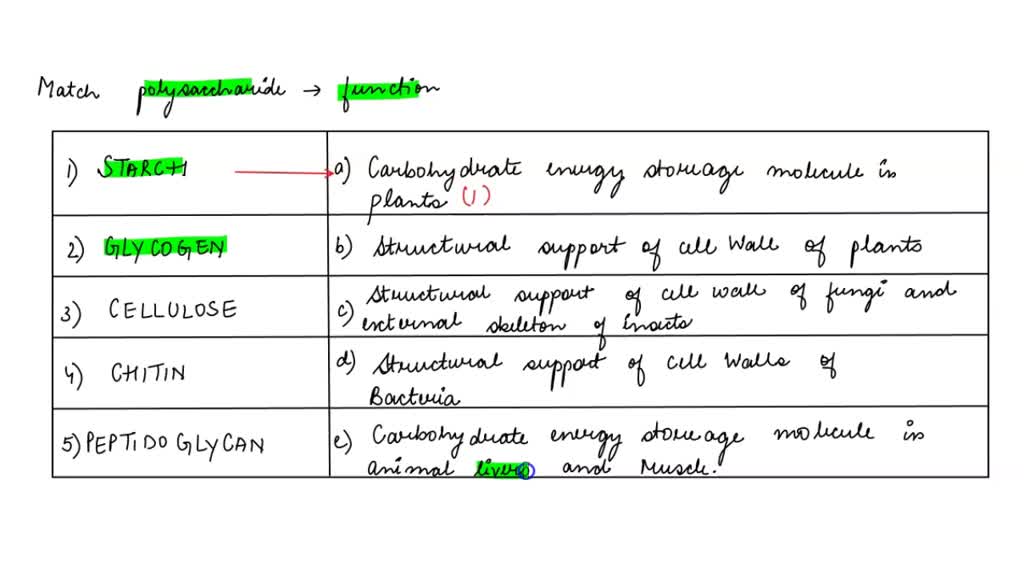 Match polysaccharide → function
1) STARCH → a) Carbohydrate energy storage molecule in
plants (1)
2) GLYCOGEN b) Structural support of cell Wall of plants
3) CELLULOSE c) Structural support of cell wall of fungi and
external skeleton of insects
4) CHITIN d) Structural support of cell Walls of
Bacteria
5) PEPTIDOGLYCAN e) Carbohydrate energy storage molecule in
animal livers and Muscle.